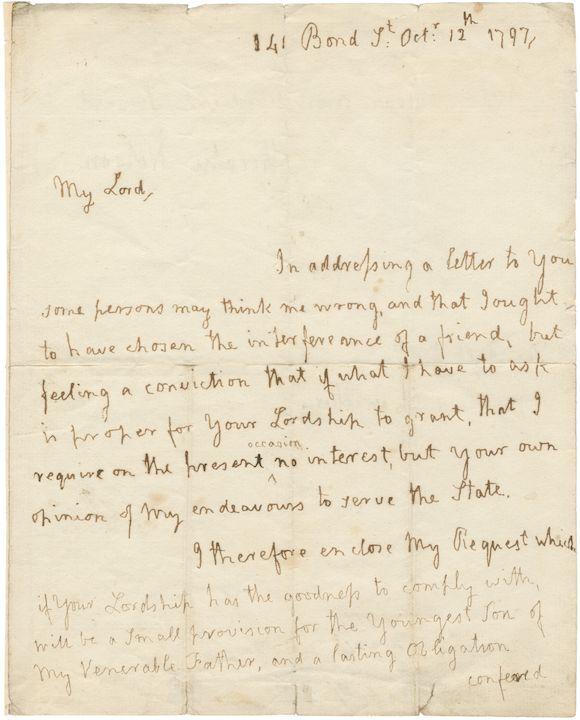 141 Bond St. Octr. 12th 1797,
My Lord,
In addressing a letter to You
some persons may think me wrong, and that I ought
to have chosen the interfereance of a friend, but
feeling a conviction that if what I have to ask
is proper for Your Lordship to grant, that I
occasion
require on the present ^ no interest, but your own
opinion of my endeavours to serve the State.
I therefore enclose My Request which
if Your Lordship has the goodness to comply with,
will be a small provision for the Youngest Son of
My Venerable Father, and a lasting Obligation
confered